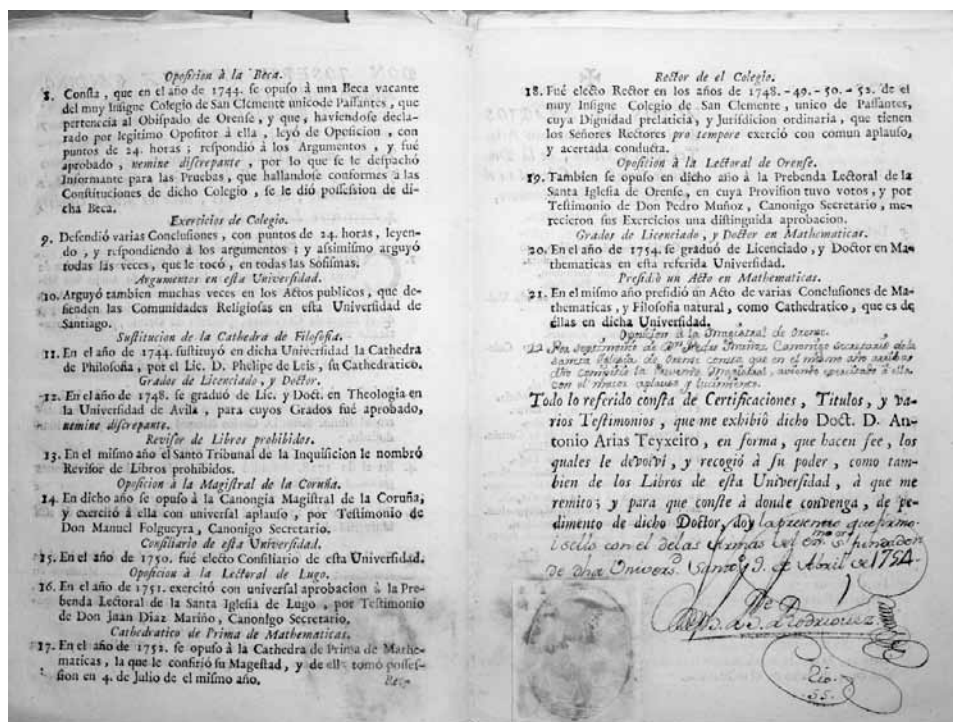 Oposicion à la Beca.
8. Consta, que en el año de 1744. se opuso à una Beca vacante
del muy Insigne Colegio de San Clemente unicode Passantes, que
pertenecia al Obispado de Orense, y que, haviendose decla-
rado por legitimo Opositor à ella, leyó de Oposicion, con
puntos de 24. horas; respondió à los Argumentos, y fué
aprobado, nemine discrepante, por lo que se le despachó
Informante para las Pruebas, que hallandose conformes à las
Constituciones de dicho Colegio, se le dió possession de di-
cha Beca.
Exercicios de Colegio.
9. Defendió varias Conclusiones, con puntos de 24. horas, leyen-
do, y respondiendo à los argumentos; y assimismo arguyó
todas las veces, que le tocó, en todas las Sofismas.
Argumentos en esta Universidad.
10. Arguyó tambien muchas veces en los Actos publicos, que de-
fienden las Comunidades Religiosas en esta Universidad de
Santiago.
Sustitucion de la Cathedra de Filosofia.
11. En el año de 1744. sustituyó en dicha Universidad la Cathedra
de Philosofia, por el Lic. D. Phelipe de Leis, su Cathedratico.
Grados de Licenciado, y Doctor.
12. En el año de 1748. se graduó de Lic. y Doct. en Theologia en
la Universidad de Avila, para cuyos Grados fué aprobado,
nemine discrepante.
Revisor de Libros prohibidos.
13. En el mismo año el Santo Tribunal de la Inquisicion le nombró
Revisor de Libros prohibidos.
Oposicion à la Magistral de la Coruña.
14. En dicho año se opuso à la Canongia Magistral de la Coruña,
y exercitó à ella con universal aplauso, por Testimonio de
Don Manuel Folgueyra, Canonigo Secretario.
Consiliario de esta Universidad.
15. En el año de 1750. fué electo Consiliario de esta Universidad.
Oposicion à la Lectoral de Lugo.
16. En el año de 1751. exercitó con universal aprobacion à la Pre-
benda Lectoral de la Santa Iglesia de Lugo, por Testimonio
de Don Juan Diaz Mariño, Canonigo Secretario.
Cathedratico de Prima de Mathematicas.
17. En el año de 1752. se opuso à la Cathedra de Prima de Mathe-
maticas, la que le confirió su Magestad, y de ella tomó posses-
sion en 4. de Julio de el mismo año.
Rector de el Colegio.
18. Fué electo Rector en los años de 1748.-49.-50.-52. de el
muy Insigne Colegio de San Clemente, unico de Passantes,
cuya Dignidad prelaticia, y Jurisdicion ordinaria, que tienen
los Señores Rectores pro tempore exerció con comun aplauso,
y acertada conducta.
Oposicion à la Lectoral de Orense.
19. Tambien se opuso en dicho año à la Prebenda Lectoral de la
Santa Iglesia de Orense, en cuya Provision tuvo votos, y por
Testimonio de Don Pedro Muñoz, Canonigo Secretario, me-
recieron sus Exercicios una distinguida aprobacion.
Grados de Licenciado, y Doctor en Mathematicas.
20. En el año de 1754. se graduó de Licenciado, y Doctor en Ma-
thematicas en esta referida Universidad.
Presidió un Acto en Mathematicas.
21. En el mismo año presidió un Acto de varias Conclusiones de Ma-
thematicas, y Filosofia natural, como Cathedratico, que es de
ellas en dicha Universidad.
Oposicion à la Magistral de Orense.
22 Por testimonio de Dn Pedro Canonigo Secretario de la
Santa Iglesia de Orense consta que en el mismo año
con el mayor aplauso y lucimiento.
Todo lo referido consta de Certificaciones, Titulos, y va-
rios Testimonios, que me exhibió dicho Doct. D. An-
tonio Arias Teyxeiro, en forma, que hacen fee, los
quales le devolví, y recogió à su poder, como tam-
bien de los Libros de esta Universidad, à que me
remito; y para que conste à donde convenga, de pe-
dimento de dicho Doctor, doy la presente que firmo
i sello con el de las Armas del Sr. fundador
de dha Univers. Abril de 1754.
Rodriguez